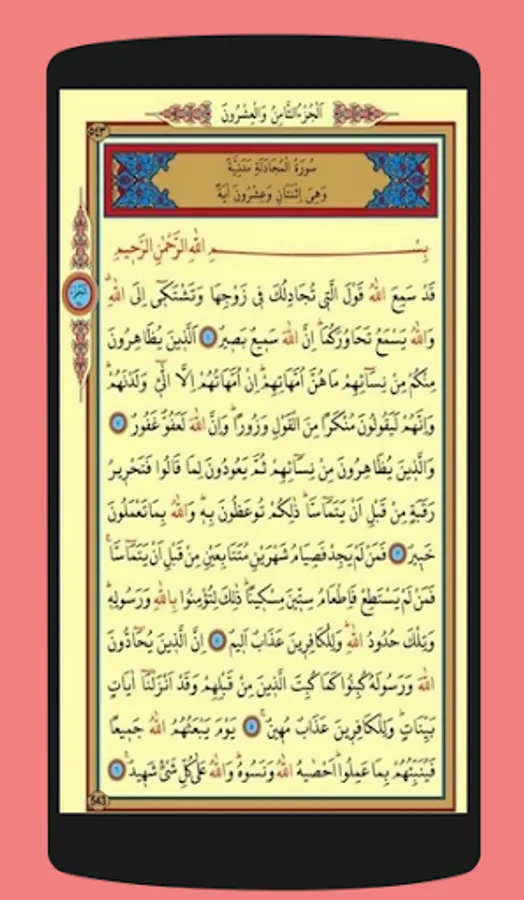 اَلْجُزْءُ الثَّامِنُ وَالْعِشْرُونَ
٥٤٣
سُورَةُ الْمُجَادَلَةِ مَدَنِيَّةٌ
وَهِىَ اِثْنَتَانِ وَعِشْرُونَ اٰيَةً
بِسْــــــــمِ اللّٰهِ الرَّحْمٰنِ الرَّحٖيمِ
قَدْ سَمِعَ اللّٰهُ قَوْلَ الَّتٖى تُجَادِلُكَ فٖى زَوْجِهَا وَتَشْتَكٖٓى اِلَى اللّٰهِۗ
وَاللّٰهُ يَسْمَعُ تَحَاوُرَكُمَاۜ اِنَّ اللّٰهَ سَمٖيعٌ بَصٖيرٌ ١ اَلَّذٖينَ يُظَاهِرُونَ
مِنْكُمْ مِنْ نِسَٓائِهِمْ مَا هُنَّ اُمَّهَاتِهِمْۜ اِنْ اُمَّهَاتُهُمْ اِلَّا الّٰٓئٖ وَلَدْنَهُمْۜ
وَاِنَّهُمْ لَيَقُولُونَ مُنْكَرًا مِنَ الْقَوْلِ وَزُورًاۜ وَاِنَّ اللّٰهَ لَعَفُوٌّ غَفُورٌ ٢
وَالَّذٖينَ يُظَاهِرُونَ مِنْ نِسَٓائِهِمْ ثُمَّ يَعُودُونَ لِمَا قَالُوا فَتَحْرٖيرُ
رَقَبَةٍ مِنْ قَبْلِ اَنْ يَتَمَٓاسَّاۜ ذٰلِكُمْ تُوعَظُونَ بِهٖۜ وَاللّٰهُ بِمَا تَعْمَلُونَ
خَبٖيرٌ ٣ فَمَنْ لَمْ يَجِدْ فَصِيَامُ شَهْرَيْنِ مُتَتَابِعَيْنِ مِنْ قَبْلِ اَنْ يَتَمَٓاسَّاۚ
فَمَنْ لَمْ يَسْتَطِعْ فَاِطْعَامُ سِتّٖينَ مِسْكٖينًاۜ ذٰلِكَ لِتُؤْمِنُوا بِاللّٰهِ وَرَسُولِهٖۜ
وَتِلْكَ حُدُودُ اللّٰهِۜ وَلِلْكَافِرٖينَ عَذَابٌ اَلٖيمٌ ٤ اِنَّ الَّذٖينَ يُحَٓادُّونَ
اللّٰهَ وَرَسُولَهُ كُبِتُوا كَمَا كُبِتَ الَّذٖينَ مِنْ قَبْلِهِمْ وَقَدْ اَنْزَلْنَٓا اٰيَاتٍ
بَيِّنَاتٍۜ وَلِلْكَافِرٖينَ عَذَابٌ مُهٖينٌۚ ٥ يَوْمَ يَبْعَثُهُمُ اللّٰهُ جَمٖيعًا
فَيُنَبِّئُهُمْ بِمَا عَمِلُواۜ اَحْصٰيهُ اللّٰهُ وَنَسُوهُۜ وَاللّٰهُ عَلٰى كُلِّ شَیْءٍ شَهٖيدٌ۟ ٦
543